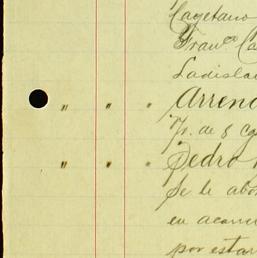 Cayetano
Fran.co Ca
Ladisla
" " " Arren
de 8 c
" " " Pedro
Se le abo
en
por estar